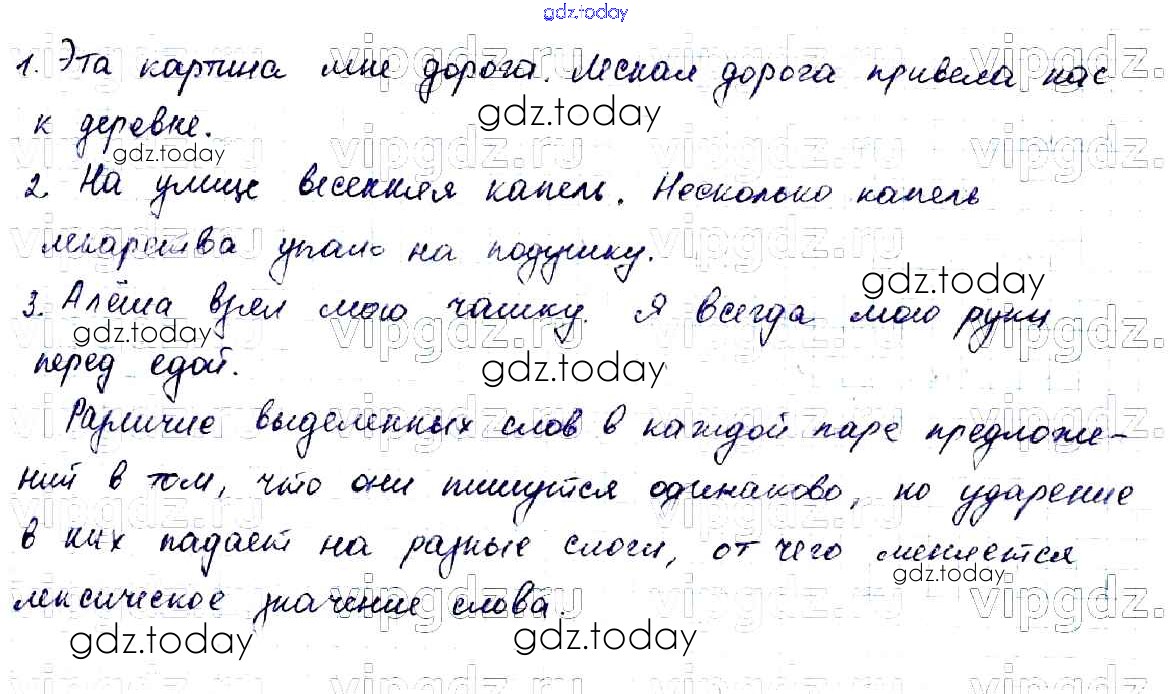 gdz.today
1. Эта картина мне дорога. Лесная дорога привела нас
к деревне.
2. На улице весенняя капель. Несколько капель
лекарства упало на подушку.
3. Алёша взял мою чашку. Я всегда мою руки
перед едой.
Различие выделенных слов в каждой паре предложе-
ний в том, что они пишутся одинаково, но ударение
в них падает на разные слоги, от чего меняется
лексическое значение слова.
gdz.today
gdz.today
gdz.today
gdz.today
gdz.today
gdz.today
gdz.today
gdz.today
vipgdz.ru
vipgdz.ru
vipgdz.ru